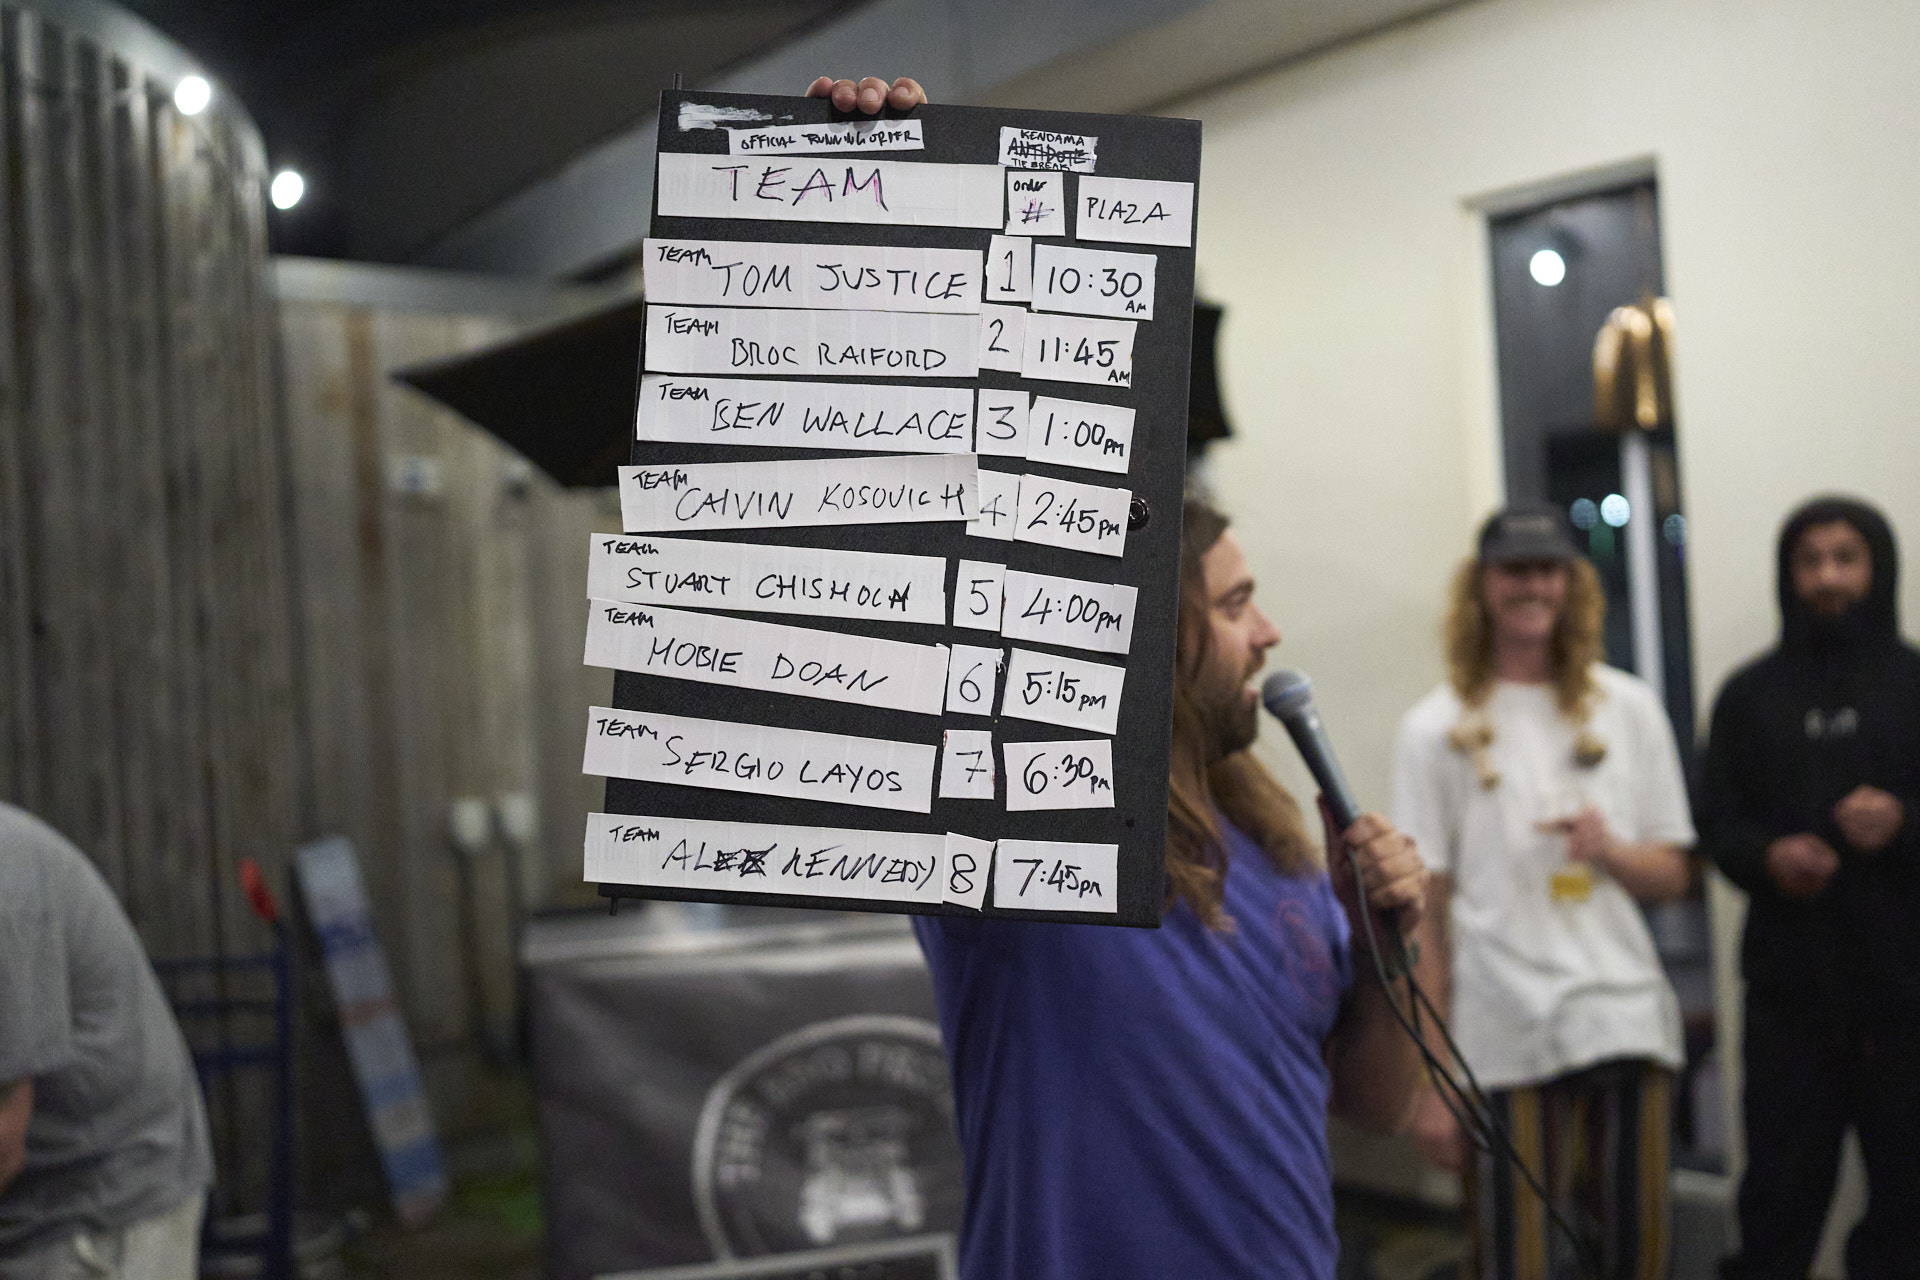 OFFICIAL RUNNING ORDER
KENDAMA
ANTIDOTE
TIE BREAK
TEAM order # PLAZA
TEAM TOM JUSTICE 1 10:30 AM
TEAM BROC RAIFORD 2 11:45 AM
TEAM BEN WALLACE 3 1:00PM
TEAM CALVIN KOSOVICH 4 2:45PM
TEAM STUART CHISHOLM 5 4:00PM
TEAM MOBIE DOAN 6 5:15PM
TEAM SERGIO LAYOS 7 6:30PM
TEAM ALEX KENNEDY 8 7:45PM
THE